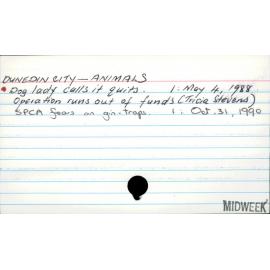 DUNEDIN CITY — ANIMALS
Dog lady calls it quits. 1: May 4, 1988
Operation runs out of funds (Tricia Stevens)
SPCA fears on gin-traps. 1: Oct. 31, 1990
MIDWEEK